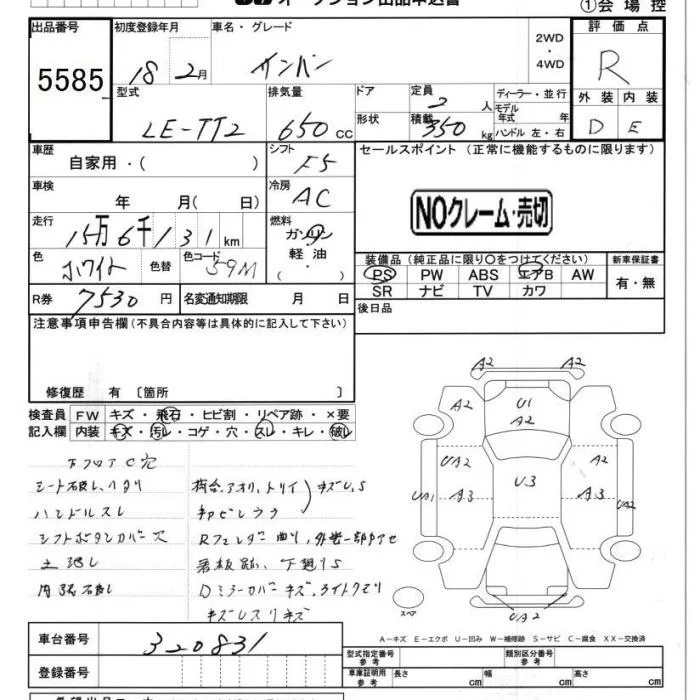 オークション出品申込書
①会場控
出品番号
5585
初度登録年月
18年2月
車名・グレード
サンバー
2WD
・
4WD
評価点
R
型式
LE-TT2
排気量
650cc
ドア
形状
定員
2人
積載
350kg
ディーラー・並行
モデル年式 年
ハンドル 左・右
外装 内装
D E
車歴
自家用・( )
シフト
F5
セールスポイント (正常に機能するものに限ります)
NOクレーム・売切
車検
年 月( 日)
冷房
AC
走行
15万6千131km
燃料
ガソリン
軽・油
( ・ )
色
ホワイト
色替
色コード
59M
装備品(純正品に限り○をつけてください)
PS PW ABS エアB AW
SR ナビ TV カワ
新車保証書
有・無
R券
7530円
名変通知期限 月 日
後日品
注意事項申告欄(不具合内容等は具体的に記入して下さい)
修復歴 有 〔箇所 〕
検査員
記入欄
FW キズ・飛石・ヒビ割・リペア跡・×要
内装 キズ・汚レ・コゲ・穴・スレ・キレ・破レ
下フロアC穴
シート破レ、ヘタリ
ハンドルスレ
シフトボタンカバー欠
内張破レ
荷台、アオリ、トリイ キズU、S
看板跡、下廻りS
Dミラーカバーキズ、ライトクモリ
A2 A2
A2
U1
A2
UA2 A2
UA1 A3 U3 A3 UA2
UA2
スペア
A-キズ E-エクボ U-凹み W-補修跡 S-サビ C-腐食 XX-交換済
車台番号
320831
登録番号
型式指定番号
参考
類別区分番号
参考
車庫証明用
参考
長さ cm
幅 cm
高さ cm